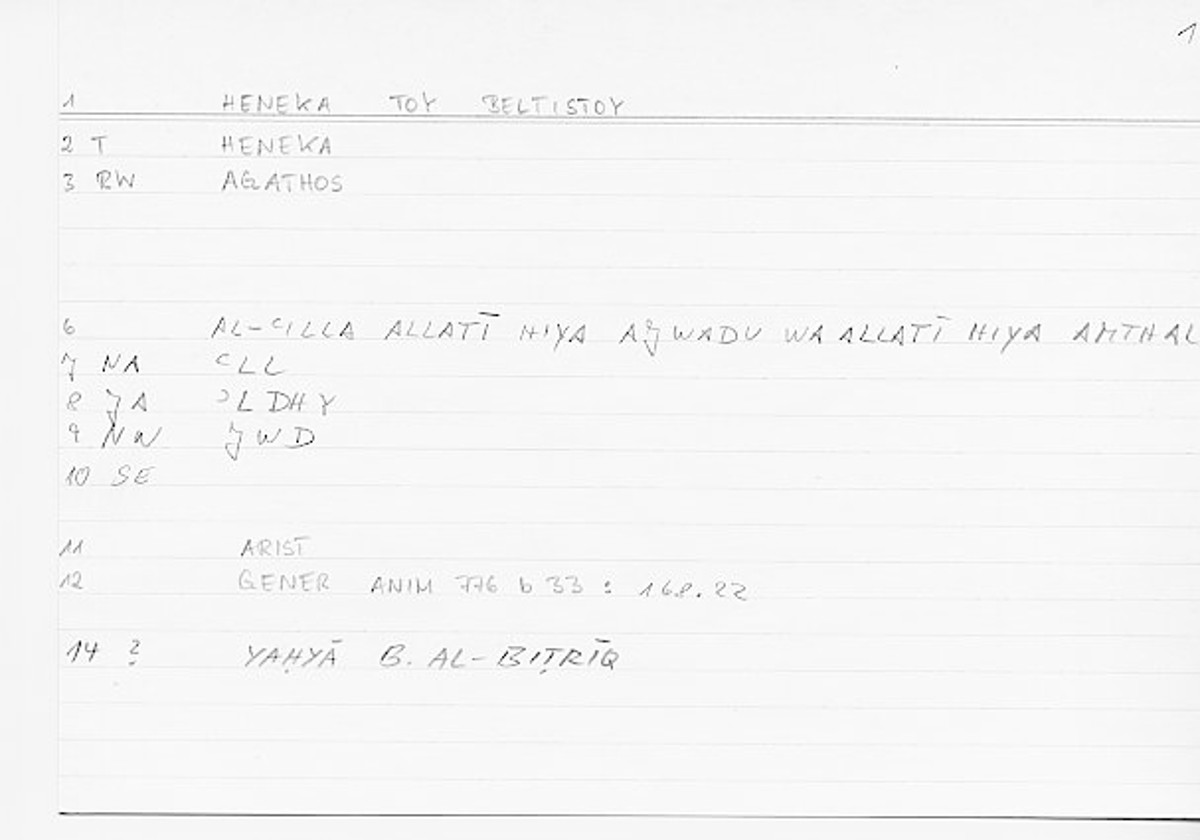 1
1 HENEKA TOY BELTISTOY
2 T HENEKA
3 RW AGATHOS
6 AL-ʿILLA ALLATĪ HIYA AJWADU WA ALLATĪ HIYA AMTHAL
7 NA ʿLL
8 JA ʾLDHY
9 NW JWD
10 SE
11 ARIST
12 GENER ANIM 776 b 33 : 168.22
14 ? YAḤYĀ B. AL-BIṬRĪQ